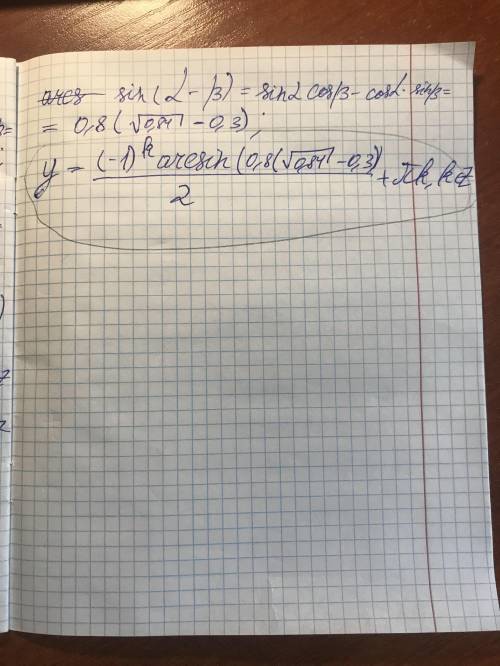 sin(α-β) = sinα cosβ - cosα · sinβ =
= 0,8(√0,84 - 0,3);
y = (-1)^k arcsin(0,8(√0,84 - 0,3)) / 2 + πk, k∈Z